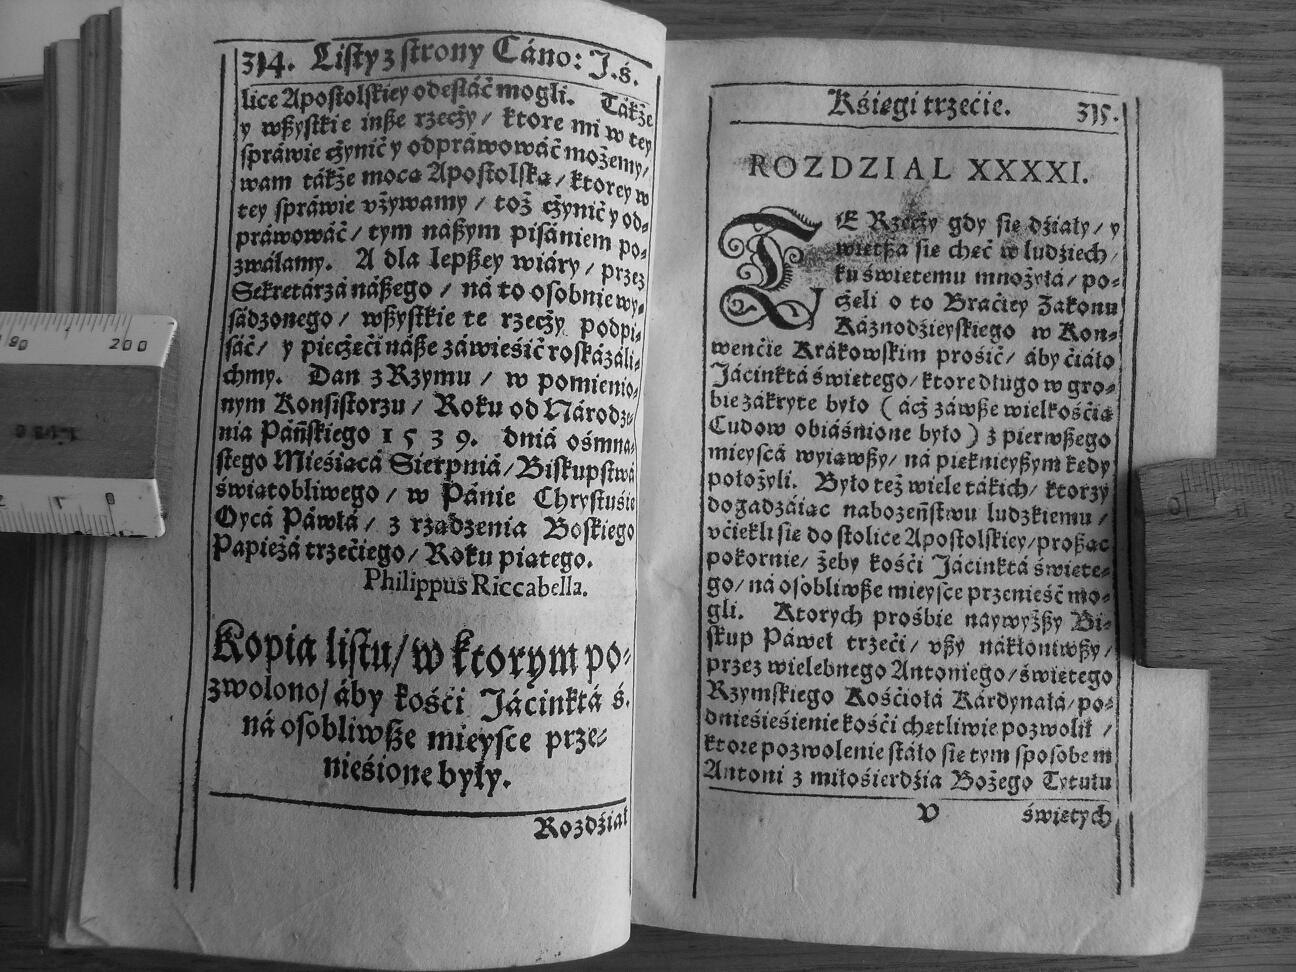 314. Listy z strony Cáno: J. ś.
lice Apostolskiey odesłáć mogli. Tákże
y wßystkie inße rzeczy / ktore mi w tey
spráwie czynić y odpráwowáć możemy /
wam tákże mocą Apostolską / ktorey w
tey spráwie vżywamy / toż czynić y od-
práwowáć / tym náßym pisániem po-
zwalamy. A dla lepßey wiáry / przez
Sekretárzá náßego / ná to osobnie wy-
sádzonego / wßystkie te rzeczy podpi-
sáć / y pieczęći náße záwieśić roskázáli-
chmy. Dan z Rzymu / w pomienio-
nym Konsistorzu / Roku od Národze-
nia Páńskiego 1539. dniá ośmna-
stego Mieśiącá Sierpniá / Biskupstwá
świątobliwego / w Pánie Chrystuśie
Oycá Páwłá / z rządzenia Boskiego
Papieżá trzećiego / Roku piątego.
Philippus Riccabella.
Kopia listu / w ktorym po-
zwolono / áby kośći Jácinktá ś.
ná osobliwße mieysce prze-
nieśione były.
Rozdźiał
Kśięgi trzećie. 315.
ROZDZIAL XXXXI.
TE Rzeczy gdy się dźiały / y
więtßa się chęć w ludźiech /
ku świętemu mnożyłá / po-
częli o to Bráćiey Zakonu
Káznodźieyskiego w Kon-
wenćie Krákowskim prośić / áby ćiáło
Jácinktá świętego / ktore długo w gro-
bie zákryte było ( ácz záwße wielkośćią
Cudow obiáśnione było ) z pierwßego
mieyscá wyiąwßy / ná pięknieyßym kędy
położyli. Było też wiele tákich / ktorzy
dogadzáiąc nabożeństwu ludzkiemu /
vćiekli się do stolice Apostolskiey / proßąc
pokornie / żeby kośći Jácinktá święte-
go / ná osobliwße mieysce przenieść mo-
gli. Ktorych prośbie naywyżßy Bi-
skup Páweł trzeći / vßy nákłoniwßy /
przez wielebnego Antoniego / świętego
Rzymskiego Kośćiołá Kárdynałá / po-
dnieśieśienie kośći chętliwie pozwolił /
ktore pozwolenie stáło się tym sposobem
Antoni z miłośierdźia Bożego Tytułu
V świętych